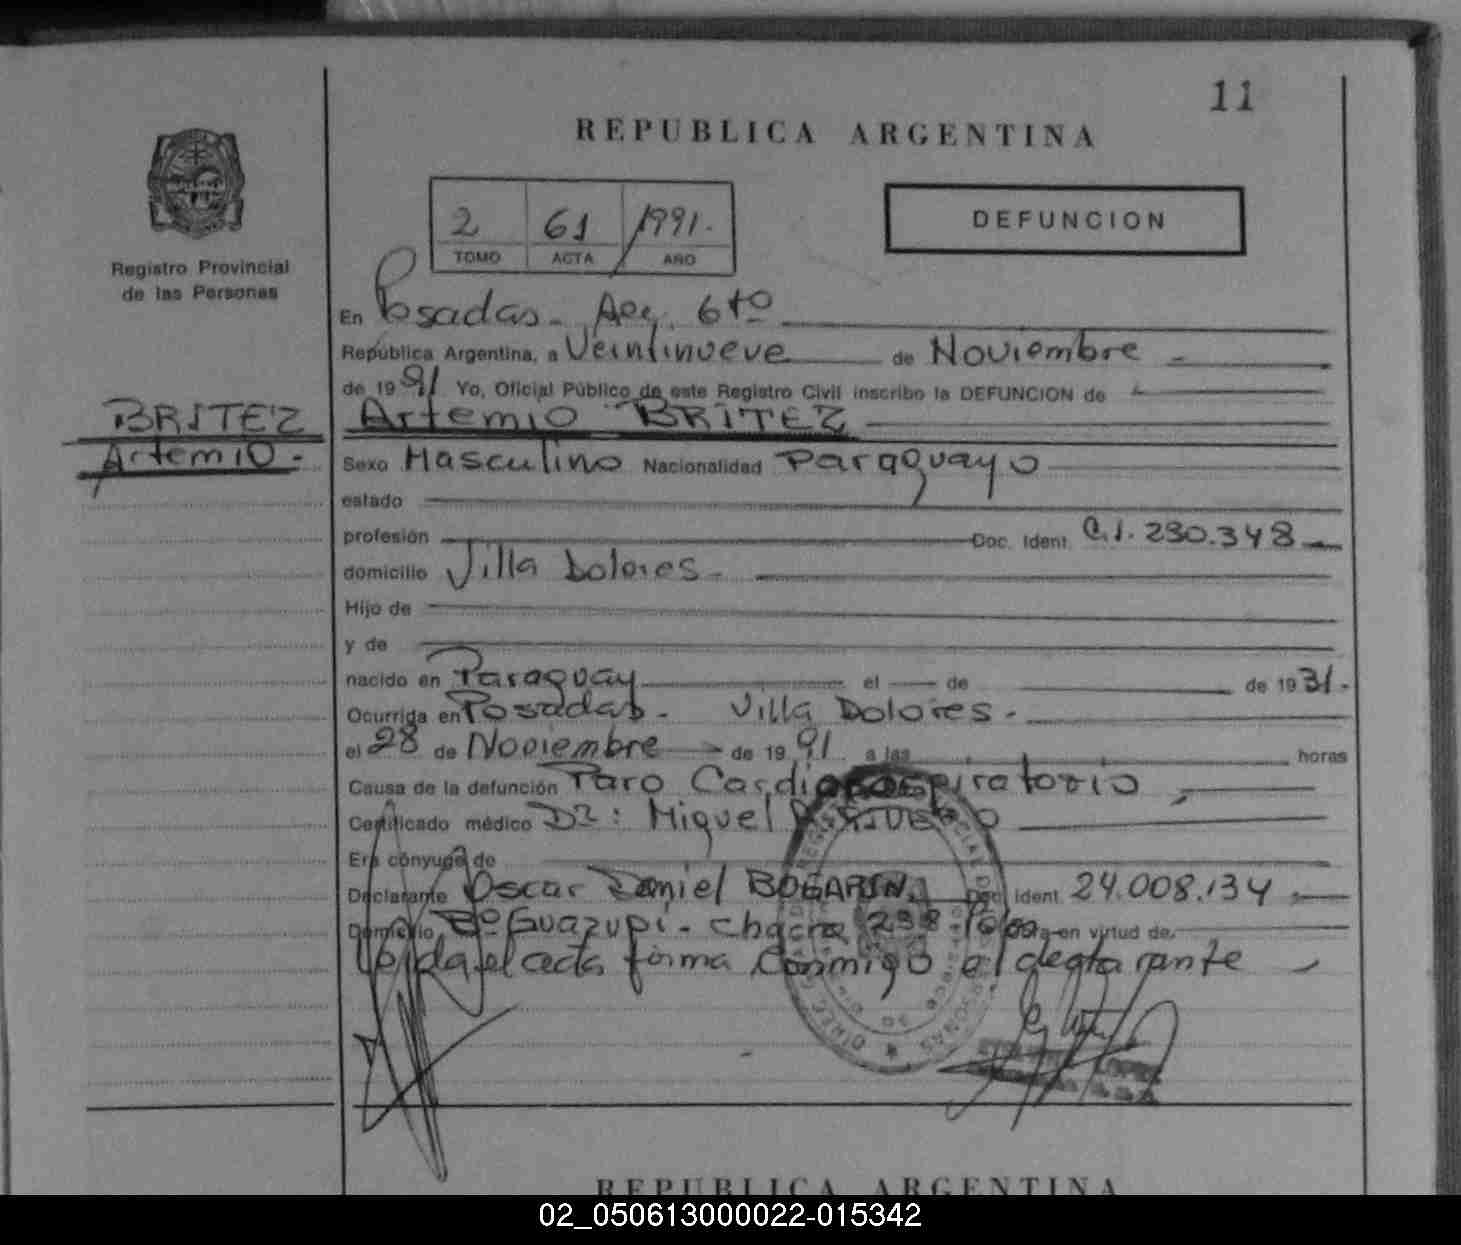 11
REPUBLICA ARGENTINA
2 61 1991.
TOMO ACTA AÑO
DEFUNCION
Registro Provincial
de las Personas
En Posadas - 6to
República Argentina, a Veintinueve de Noviembre
de 1991 Yo, Oficial Público de este Registro Civil inscribo la DEFUNCION de
BRITEZ
Artemio -
Artemio BRITEZ
Sexo Masculino Nacionalidad Paraguayo
estado
profesión Doc. Ident. C.I. 230.348
domicilio Villa Dolores -
Hijo de
y de
nacido en Paraguay el de de 1931.
Ocurrida en Posadas - Villa Dolores -
el 28 de Noviembre de 1991 a las horas
Causa de la defunción Paro Cardiorespiratorio
Certificado médico Dr: Miguel
Era cónyuge de
Declarante Oscar Daniel BOGARIN, Doc. Ident. 24.008.134
Domicilio Bº Guazupi - Chacra 298 en virtud de
Leida el acta firma conmigo el declarante
REPUBLICA ARGENTINA
02_050613000022-015342